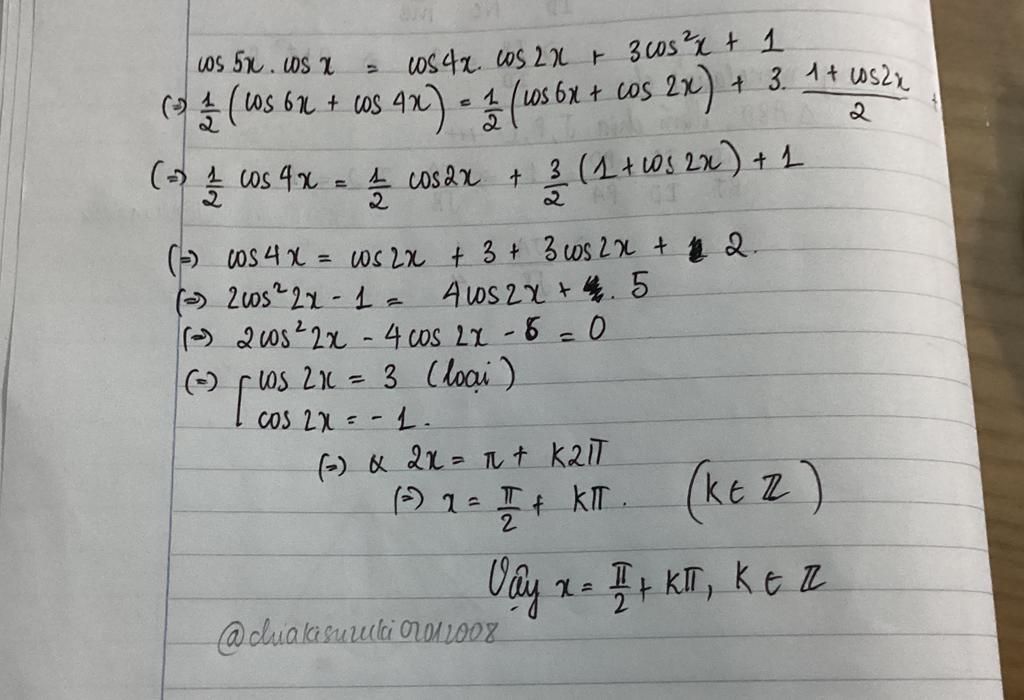 cos 5x . cos x = cos 4x . cos 2x + 3 cos²x + 1
(=) 1/2 (cos 6x + cos 4x) = 1/2 (cos 6x + cos 2x) + 3. (1 + cos2x)/2 +
(=) 1/2 cos 4x = 1/2 cos2x + 3/2 (1 + cos 2x) + 1
(=) cos 4x = cos 2x + 3 + 3 cos 2x + 2.
(=) 2cos² 2x - 1 = 4 cos 2x + . 5
(=) 2 cos² 2x - 4 cos 2x - 6 = 0
(=) [ cos 2x = 3 (loại)
cos 2x = - 1.
(=) 2x = π + k2π
(=) x = π/2 + kπ. (k ∈ ℤ)
Vậy x = π/2 + kπ, k ∈ ℤ
@chiakisuzuki02012008